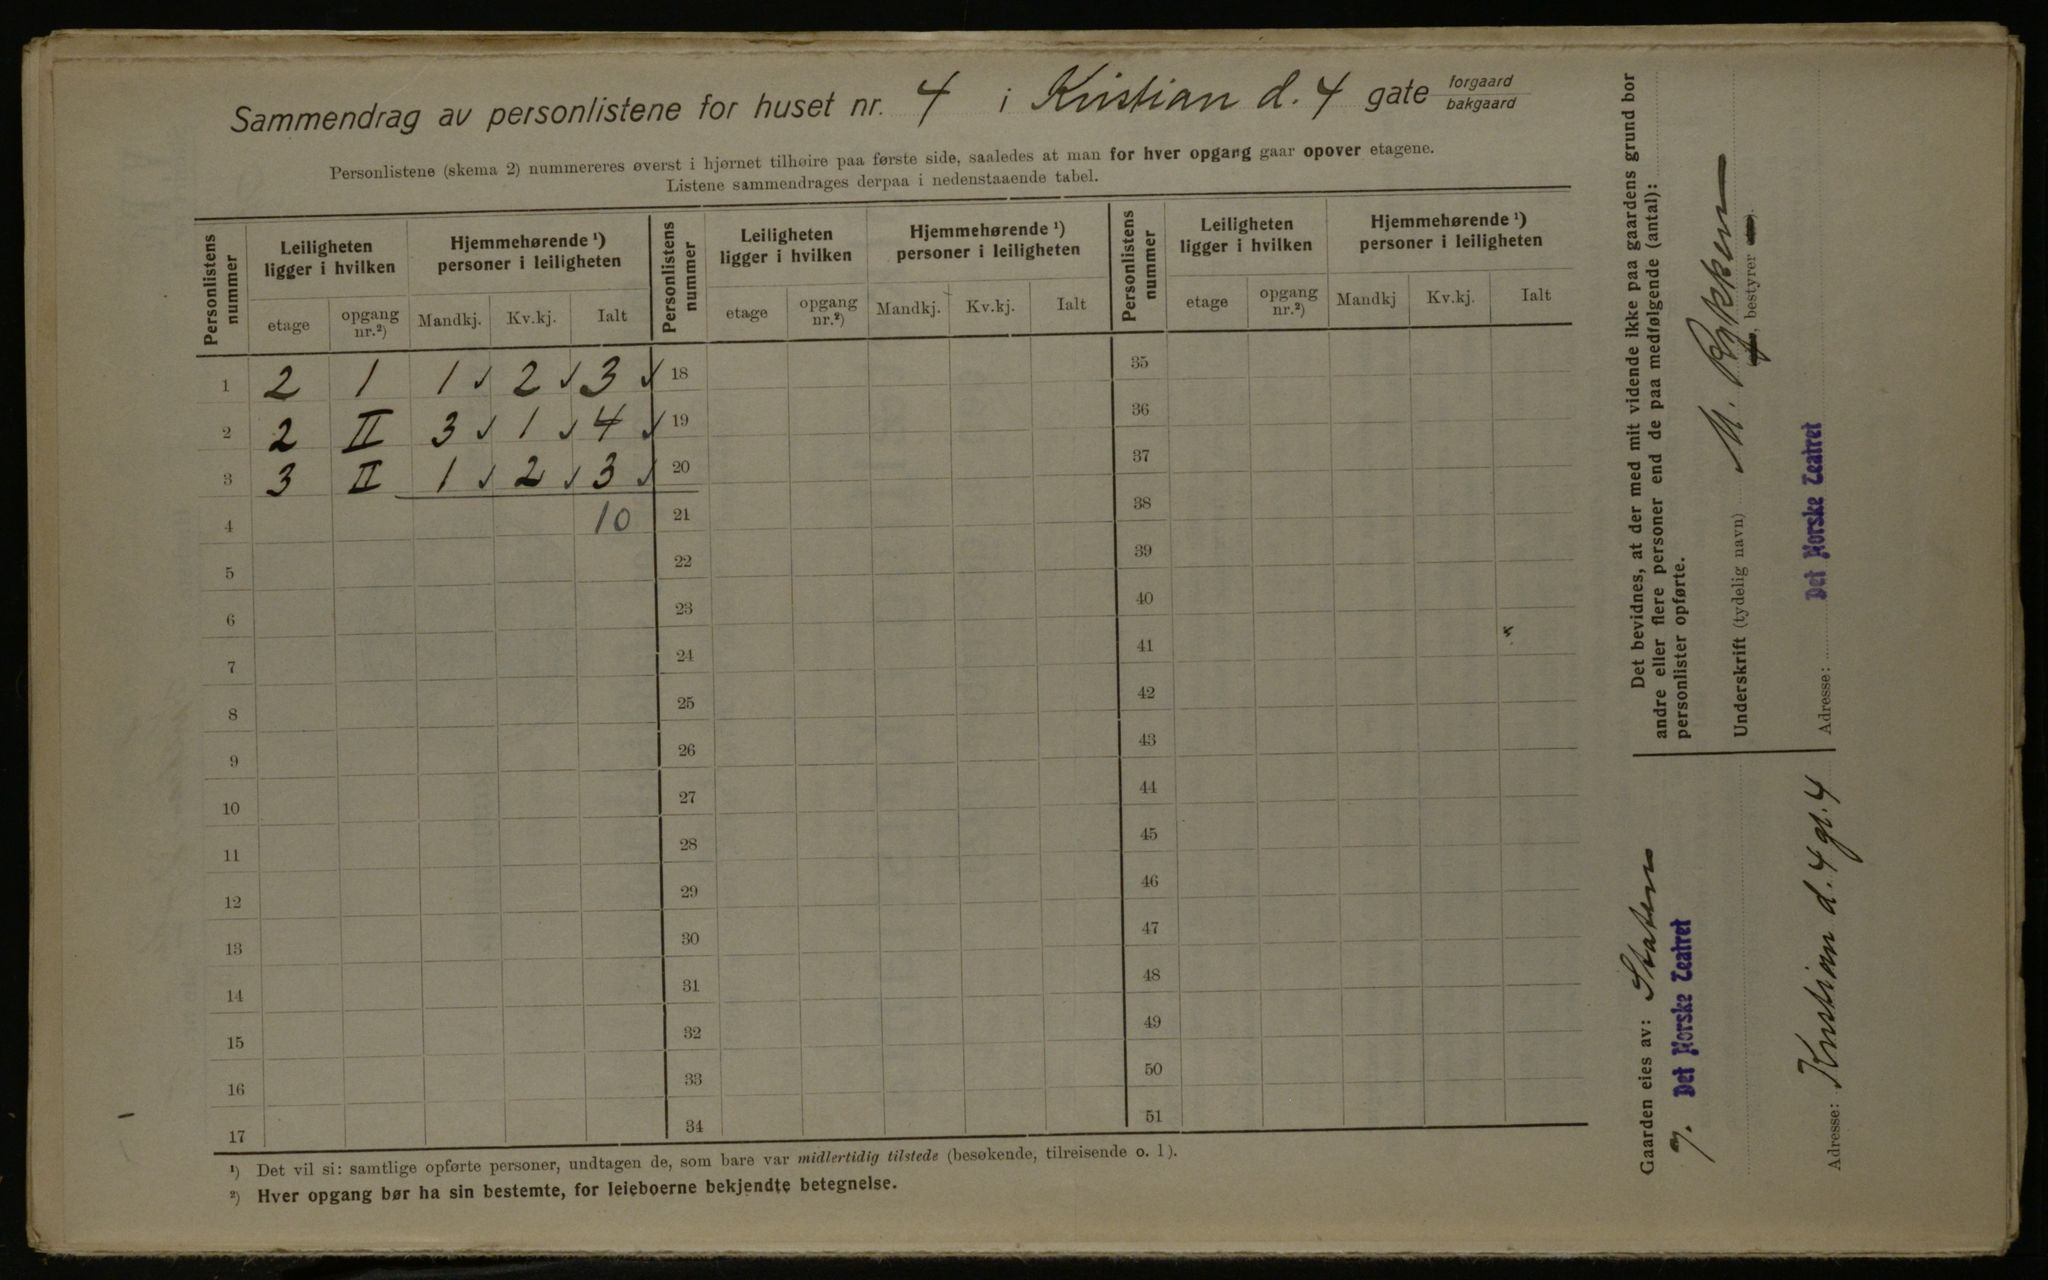 Sammendrag av personlistene for huset nr. 4 i Kristian d. 4 gate forgaard bakgaard
Personlistene (skema 2) nummereres øverst i hjørnet tilhøire paa første side, saaledes at man for hver opgang gaar opover etagene.
Listene sammendrages derpaa i nedenstaaende tabel.
Personlistens nummer
Leiligheten ligger i hvilken
Hjemmehørende ¹) personer i leiligheten
Personlistens nummer
Leiligheten ligger i hvilken
Hjemmehørende ¹) personer i leiligheten
Personlistens nummer
Leiligheten ligger i hvilken
Hjemmehørende ¹) personer i leiligheten
etage opgang nr.²) Mandkj. Kv.kj. Ialt etage opgang nr.²) Mandkj. Kv.kj. Ialt etage opgang nr.²) Mandkj Kv.kj. Ialt
1 2 I 1 ✓ 2 ✓ 3 ✓ 18 35
2 2 II 3 ✓ 1 ✓ 4 ✓ 19 36
3 3 II 1 ✓ 2 ✓ 3 ✓ 20 37
4 10 21 38
5 22 39
6 23 40
7 24 41
8 25 42
9 26 43
10 27 44
11 28 45
12 29 46
13 30 47
14 31 48
15 32 49
16 33 50
17 34 51
¹) Det vil si: samtlige opførte personer, undtagen de, som bare var midlertidig tilstede (besøkende, tilreisende o. l).
²) Hver opgang bør ha sin bestemte, for leieboerne bekjendte betegnelse.
Det bevidnes, at der med mit vidende ikke paa gaardens grund bor
andre eller flere personer end de paa medfølgende (antal):
personlister opførte.
Underskrift (tydelig navn) M. Rykken
, bestyrer
Det Norske Teatret
Adresse:
Gaarden eies av: Staten
Det Norske Teatret
Adresse: Kristian d. 4 gt. 4